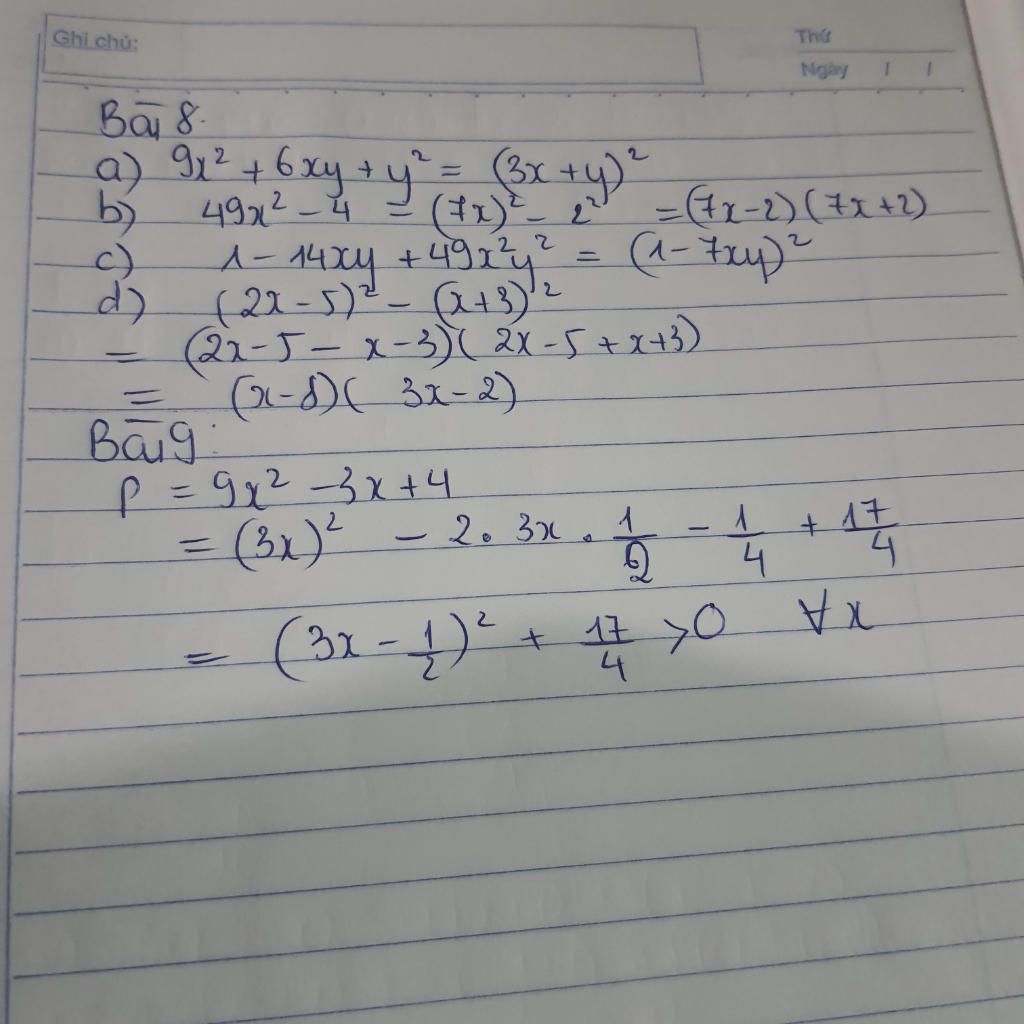 Ghi chú:
Thứ
Ngày / /
Bài 8.
a) 9x² + 6xy + y² = (3x + y)²
b) 49x² - 4 = (7x)² - 2² = (7x-2)(7x+2)
c) 1 - 14xy + 49x²y² = (1 - 7xy)²
d) (2x - 5)² - (x+3)²
= (2x - 5 - x - 3)(2x - 5 + x + 3)
= (x - 8)(3x - 2)
Bài 9:
P = 9x² - 3x + 4
= (3x)² - 2 . 3x . 1/2 - 1/4 + 17/4
= (3x - 1/2)² + 17/4 > 0 ∀ x